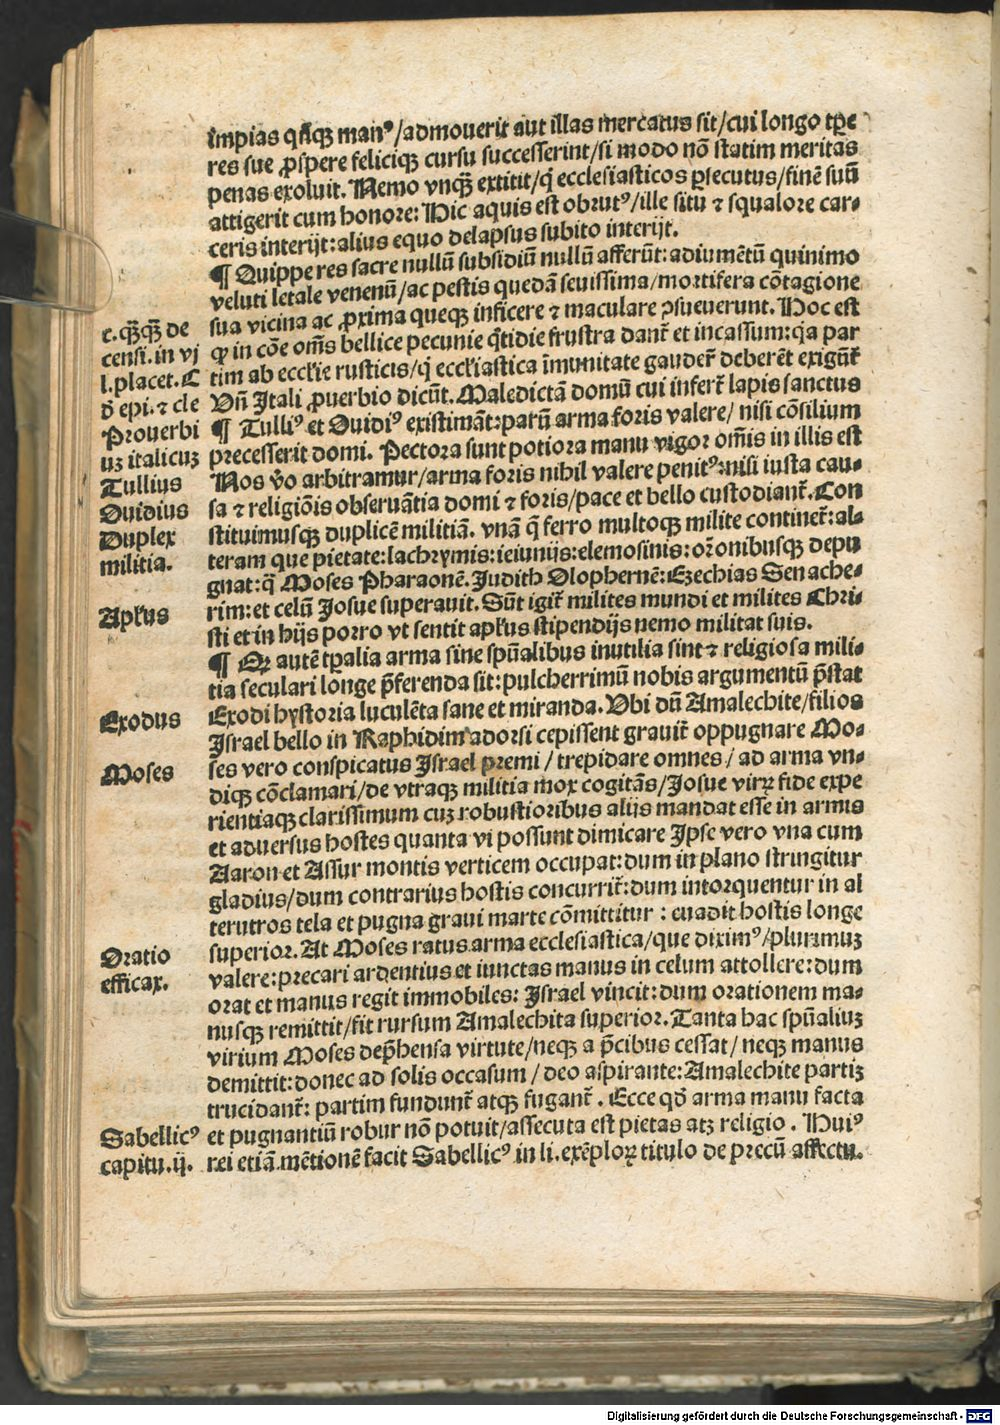 impias quāqꝫ manꝰ/admouerit aut illas mercatus sit/cui longo tꝑe
res sue ꝓspere feliciqꝫ cursu successerint/si modo nō statim meritas
penas exoluit. Nemo vnqꝫ̄ extitit/q̇ ecclesiasticos ꝑsecutus/finē suū
attigerit cum honore: Hic aquis est obrutꝰ/ille situ ⁊ squalore car⸗
ceris interijt: alius equo delapsus subito interijt.
¶ Quippe res sacre nullū subsidiū nullū afferūt: adiumētū quinimo
veluti letale venenū/ac pestis quedā seuissima/mortifera cōtagione
sua vicina ac ꝓxima queqꝫ inficere ⁊ maculare ↄsueuerunt. Hoc est
ꝙ in cōe om̄s bellice pecunie q̇tidie frustra dant̄ et incassum: q̇a par
tim ab eccl̄ie rusticis/q̇ eccl̄iastica īmunitate gauder̄ deberēt exigūt̄
Vn̄ Itali ꝓuerbio dicūt. Maledictā domū cui infert̄ lapis sanctus
¶ Tulliꝰ et Ouidiꝰ existimāt: parū arma foris valere/ nisi cōsilium
precesserit domi. Pectora sunt potiora manu vigor om̄is in illis est
Nos v̊o arbitramur/arma foris nihil valere penitꝰ: nisi iusta cau⸗
sa ⁊ religiōis obseruātia domi ⁊ foris/pace et bello custodiant̄. Con
stituimusqꝫ duplicē militiā. vnā q̄ ferro multoqꝫ milite continet̄: al⸗
teram que pietate: lachrymis: ieiunijs: elemosinis: or̄onibusqꝫ depu
gnat: q̄ Moses Pharaonē. Judith Olophernē: Ezechias Senache⸗
rim: et celū Josue superauit. Sūt igit̄ milites mundi et milites Chri⸗
sti et in hijs porro vt sentit apl̄us stipendijs nemo militat suis.
¶ Qꝫ autē tꝑalia arma sine spūalibus inutilia sint ⁊ religiosa mili⸗
tia seculari lōnge p̄ferenda sit: pulcherrimū nobis argumentū p̄stat
Exodi hystoria luculēta sane et miranda. Vbi dū Amalechite/filios
Israel bello in Raphidim adorsi cepissent grauit̄ oppugnare Mo⸗
ses vero conspicatus Israel premi/ trepidare omnes/ ad arma vn⸗
diqꝫ cōclamari/de vtraqꝫ militia mox cogitās/Josue virꝝ fide expe
rientiaqꝫ clarissimum cuꝫ robustioribus alijs mandat esse in armis
et aduersus hostes quanta vi possunt dimicare Ipse vero vna cum
Aaron et Assur montis verticem occupat: dum in plano stringitur
gladius/dum contrarius hostis concurrit̄: dum intorquentur in al
terutros tela et pugna graui marte cōmittitur : euadit hostis longe
superior. At Moses ratus arma ecclesiastica/que diximꝰ/plurimuꝫ
valere: precari ardentius et iunctas manus in celum attollere: dum
orat et manus regit immobiles: Israel vincit: dum orationem ma⸗
nusqꝫ remittit/fit rursum Amalechita superior. Tanta hac spūaliuꝫ
virium Moses dep̄hensa virtute/neqꝫ a p̄cibus cessat/ neqꝫ manus
demittit: donec ad solis occasum / deo aspirante: Amalechite partiꝫ
trucidant̄: partim fundunt̄ atqꝫ fugant̄ . Ecce qd̊ arma manu facta
et pugnantiū robur nō potuit/assecuta est pietas atꝫ religio . Huiꝰ
rei etiā mētionē facit Sabellicꝰ in li. exēploꝝ titulo de precū affectu.
c. qꝫ̄qꝫ̄ de
censi. in vj
l. placet. C
d̊ epi. ⁊ cle
Prouerbi
uꝫ italicuꝫ
Tullius
Ouidius
Duplex
militia.
Apl̄us
Exodus
Moses
Oratio
efficax.
Sabellicꝰ
capitu. ij.
Digitalisierung gefördert durch die Deutsche Forschungsgemeinschaft - DFG